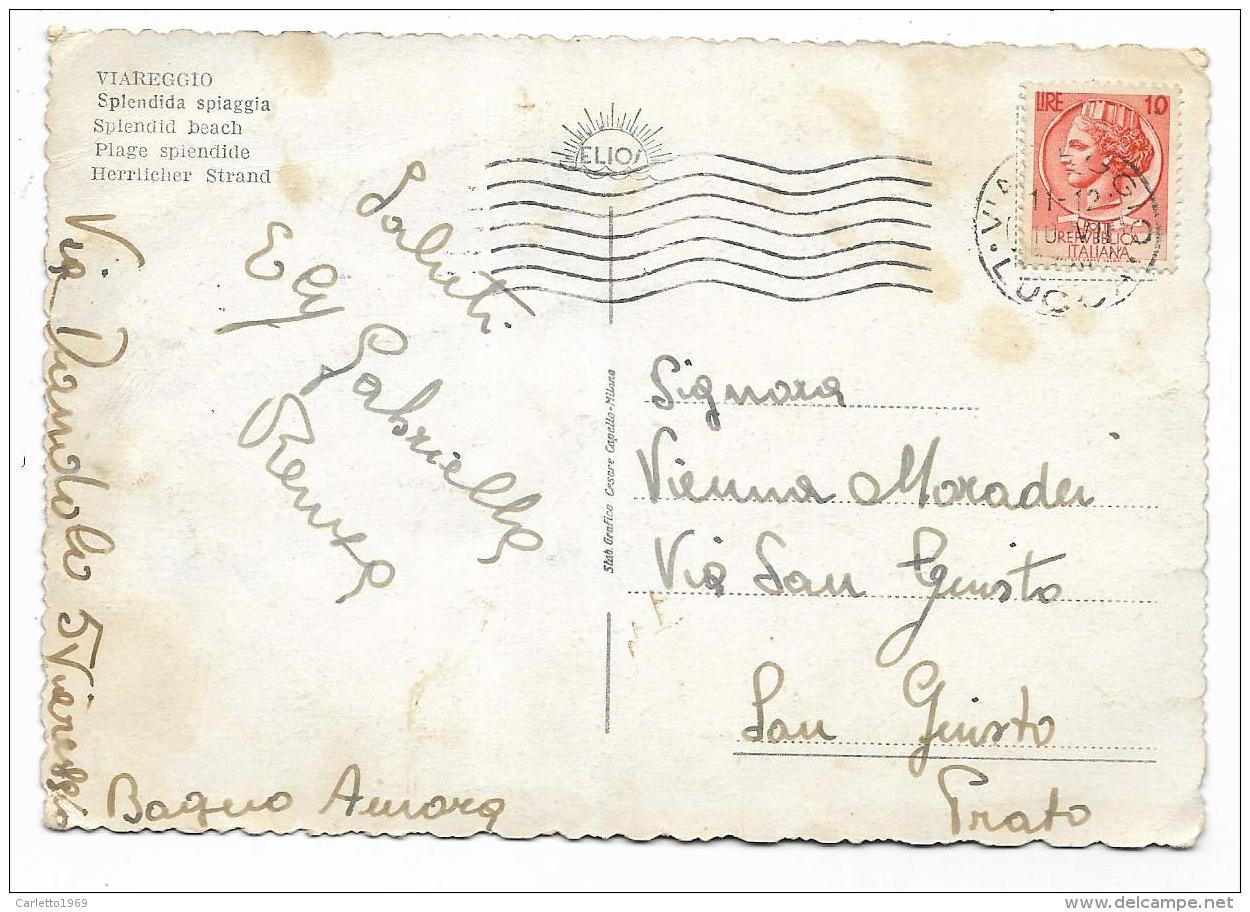 VIAREGGIO
Splendida spiaggia
Splendid beach
Plage splendide
Herrlicher Strand
ELIOS
LIRE 10
REPUBBLICA
ITALIANA
11-12
VII
LUCCA
Saluti
Ely
Gabriella
Renza
Via Dandolo 5 Viareggio
Bagno Aurora
Stab. Grafico Cesare Capello-Milano
Signora
Vienna Moradei
Via San Giusto
San Giusto
Prato
Carletto1969
www.delcampe.net